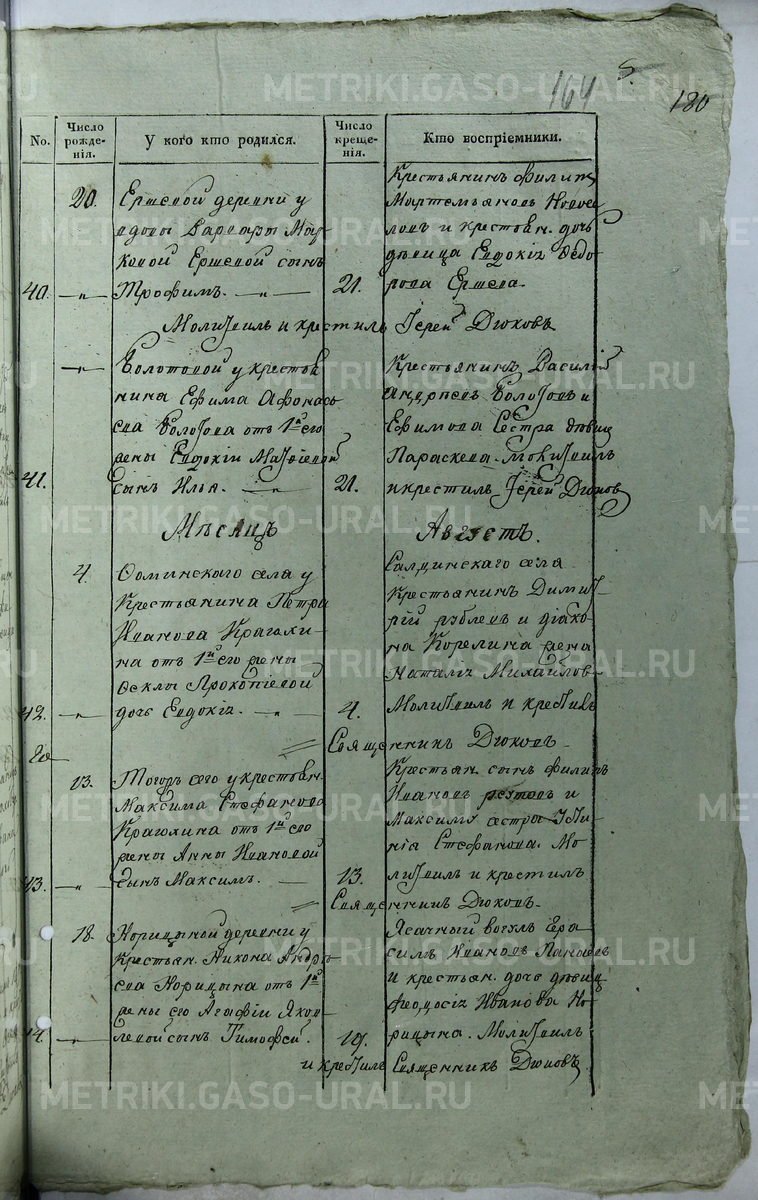 164
5.
180
No.
Число рожде-
нія.
У кого кто родился.
Число креще-
нія.
Кто воспріемники.
20.
Ершевой деревни у
вдовы Варвары Мар
ковой Ершевой сынъ
40. —„— Трофимъ. —„—
21.
Крестьянинъ Филипъ
Мартемьяновъ Новосе
ловъ и крестьян. дочь
дѣвица Евдокія Ѳедо
рова Ершева.
Молитвилъ и крестилъ Іерей Дюковъ
—„—
Болотовой у крестья
нина Ефима Афонась
ева Болотова отъ 1й его
жены Евдокіи Матѳіевой
41.
сынъ Илья. —„—
21.
Крестьянинъ Василій
Андреевъ Болотовъ и
Ефимова сестра дѣвиц
Параскева. Молитвилъ
и крестилъ Іерей Дюковъ
Мѣсяцъ Августъ.
4.
Фоминскаго села у
Крестьянина Петра
Иванова Краголи-
на отъ 1й его жены
Ѳеклы Прокопіевой
42. —„— дочь Евдокія. —„—
4.
Салдинскаго села
Крестьянинъ Димит
рій Рублевъ и діако
на Корелина жена
Наталія Михайлов-
Молитвилъ и крестилъ
Священникъ Дюковъ
13.
Тогожъ села у крестьян.
Максима Стефанова
Крагохина отъ 1й его
жены Анны Ивановой
43. —„— сынъ Максимъ. —
13.
Крестьян. сынъ Филипъ
Ивановъ и
Максима сестра
Стефанова. Мо
литвилъ и крестилъ
Священникъ Дюковъ.
18.
Норицыной деревни у
крестьян. Никона Андре
ева Норицына отъ 1й
жены его Агафіи Яков
44. —„— левой сынъ Тимофей.
19.
Ясачный вогулъ Гера
симъ Ивановъ
и крестьян. дочь дѣвиц
Феодосія Иванова Но
рицына. Молитвилъ
и крестилъ Священникъ Дюковъ.
METRIKI.GASO-URAL.RU